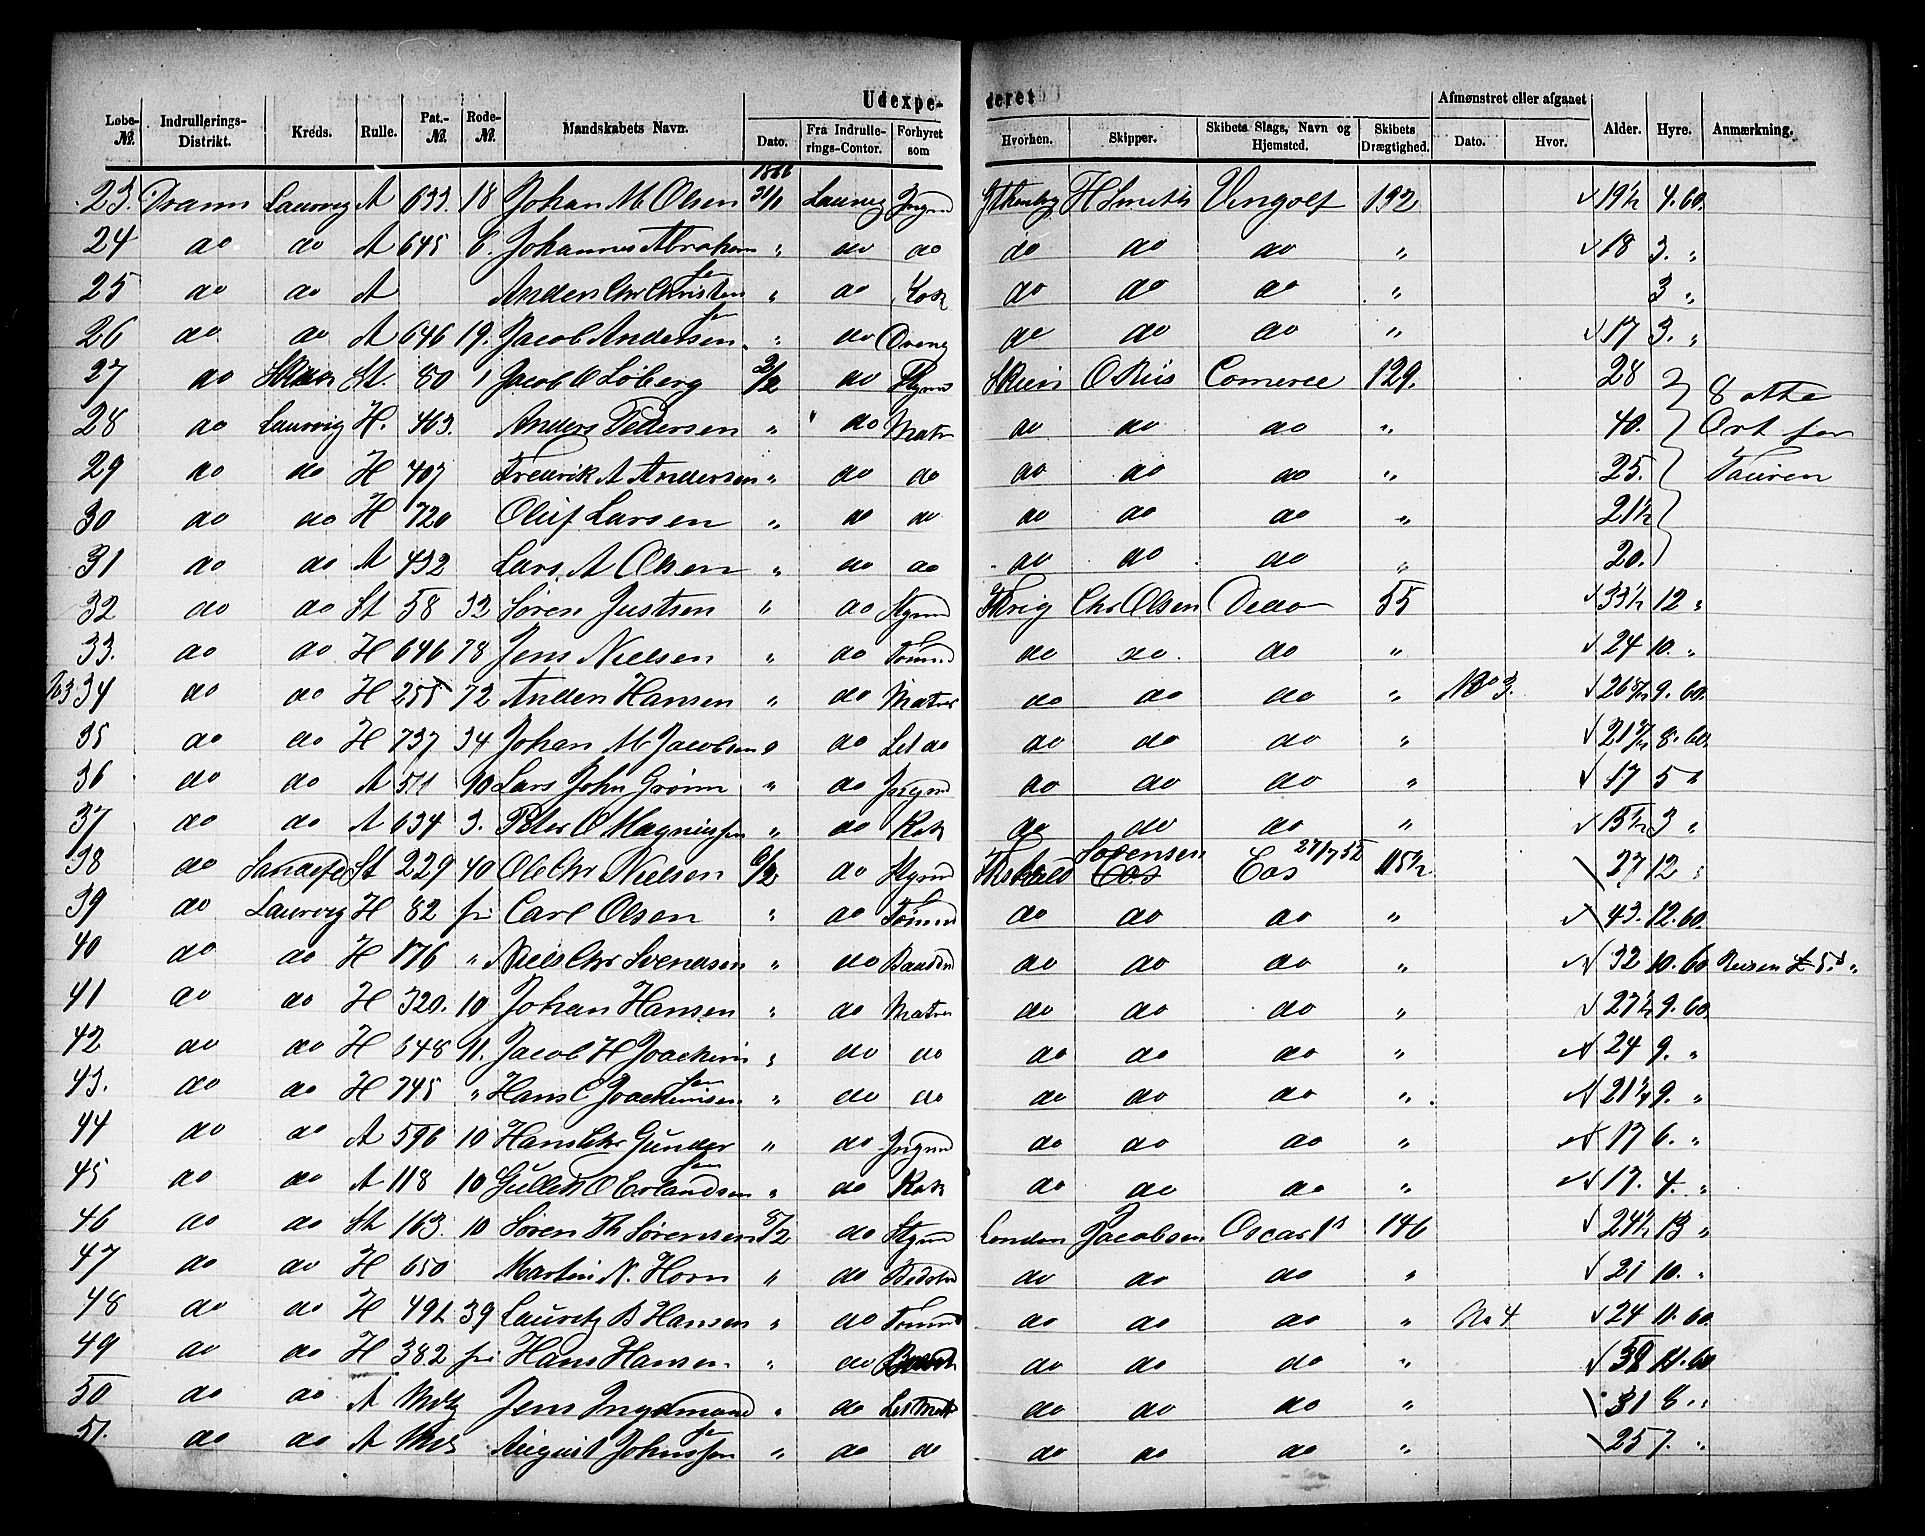 Udexpe- deret
Løbe-№. Indrullerings-Distrikt. Kreds. Rulle. Pat.-№. Rode-№. Mandskabets Navn. Dato. Fra Indrulle-rings-Contor. Forhyret som Hvorhen. Skipper. Skibets Slags, Navn og Hjemsted. Skibets Drægtighed. Afmønstret eller afgaaet Dato. Hvor. Alder. Hyre. Anmærkning.
1866
23. Dramn Laurvig A 633. 18 Johan M Olsen 31/1 Laurvig Jngmd H Smith Vingolf 192 19½ 4. 60.
24 do do A 645 6. Johannes Abraham sen " do do do do do " 18 3. "
25 do do A Anders Chr Christen sen " do Kok do do do " 3 "
26 do do A 646 19. Jacob Andersen " do Dreng do do do " 17 3. "
27 do Skien St. 80 1 Jacob O Loberg 2/2 do Stymd Skien O Riis Comerce 129. 28 8 otte
28 do Laurvig H. 463. Anders Pedersen " do Matr do do do " 40. Ort for
29 do do H 407 Fredrik A Andersen " do do do do do " 25. Touren
30 do do H 720 Oluf Larsen " do do do do do " 21½
31 do do A 432 Lars A Olsen " do do do do do " 20.
32 do do St 58 32 Søren Justsen " do Stymd Chr Olsen Dedo 55 33½ 12 "
33. do do H 646 78 Jens Nielsen " do Tømmd do do do " 24 10. "
34 do do H 255 72 Anders Hansen " do Matros do do do " No 3. 26 9. 60.
35 do do H 737 34 Johan M Jacobsen " do Let do do do do " 21 8. 60.
36 do do A 511 90 Lars John Grønn " do Jngmd do do do " 17 5 "
37 do do A 634 3. Peter O Magnussen " do Kok do do do " 15½ 3 "
38 do Sandefd St 229 40 Ole Chr Nielsen 6/2 do Stymd Sørensen Eos 115½ 27 12 "
39 do Laurvig H 82 fri Carl Olsen " do Tømmd do do do " 43. 12. 60.
40 do do H 176 " Niels Chr Svendsen " do Baadsmd do do do " 32 10. 60
41 do do H 320. 10 Johan Hansen " do Matros do do do " 27½ 9. 60.
42 do do H 648 11. Jacob H Joachim sen " do do do do do " 24 9. "
43. do do H 745 " Hans C Joachimsen " do do do do do " 21½ 9. "
44 do do A 596 10 Hans Chr Gunder sen " do Jngmd do do do " 17 6. "
45 do do A 118 10 Gullik O Erlandsen " do Kok do do do " 17. 4. "
46 do do St 163. 10 Søren Th Sørensen 5/2 do Stymd London Jacobsen Oscar 1s 146 24½ 13 "
47 do do H 650 Martin N. Horn " do do do do " 21 10. "
48 do do H 491 39 Lauritz B Hansen " do Tømmd do do do " No 4 24 11. 60.
49 do do H 382 fri Hans Hansen " do do do do " 11. 60
50 do do A Jens Ingdmand sen " do Let Matr do do do " 31 8 "
51. do do A August Johnssen " do do do do do " 25 7. "